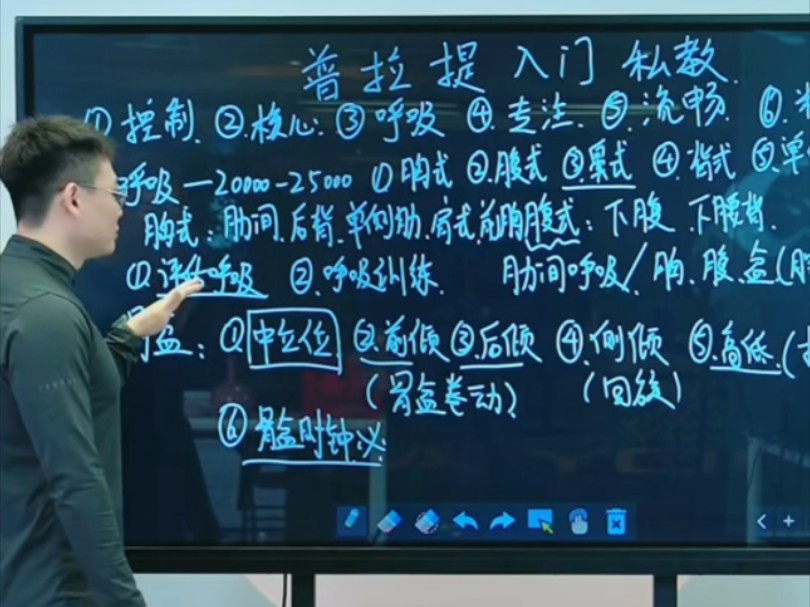 普拉提入门私教
① 控制 ② 核心 ③ 呼吸 ④ 专注 ⑤ 流畅 ⑥
呼吸—20000-25000 ① 胸式 ② 腹式 ③ 聚式 ④ 背式 ⑤ 单
胸式: 肋间、后背、单侧肋、肩式 前胸 腹式: 下腹 下腰背
① 评估呼吸 ② 呼吸训练 肋间呼吸/胸、腹、盆(
骨盆: ① 中立位 ② 前倾 ③ 后倾 ④ 侧倾 ⑤ 高低 (
(骨盆卷动) (回旋)
⑥ 骨盆时钟